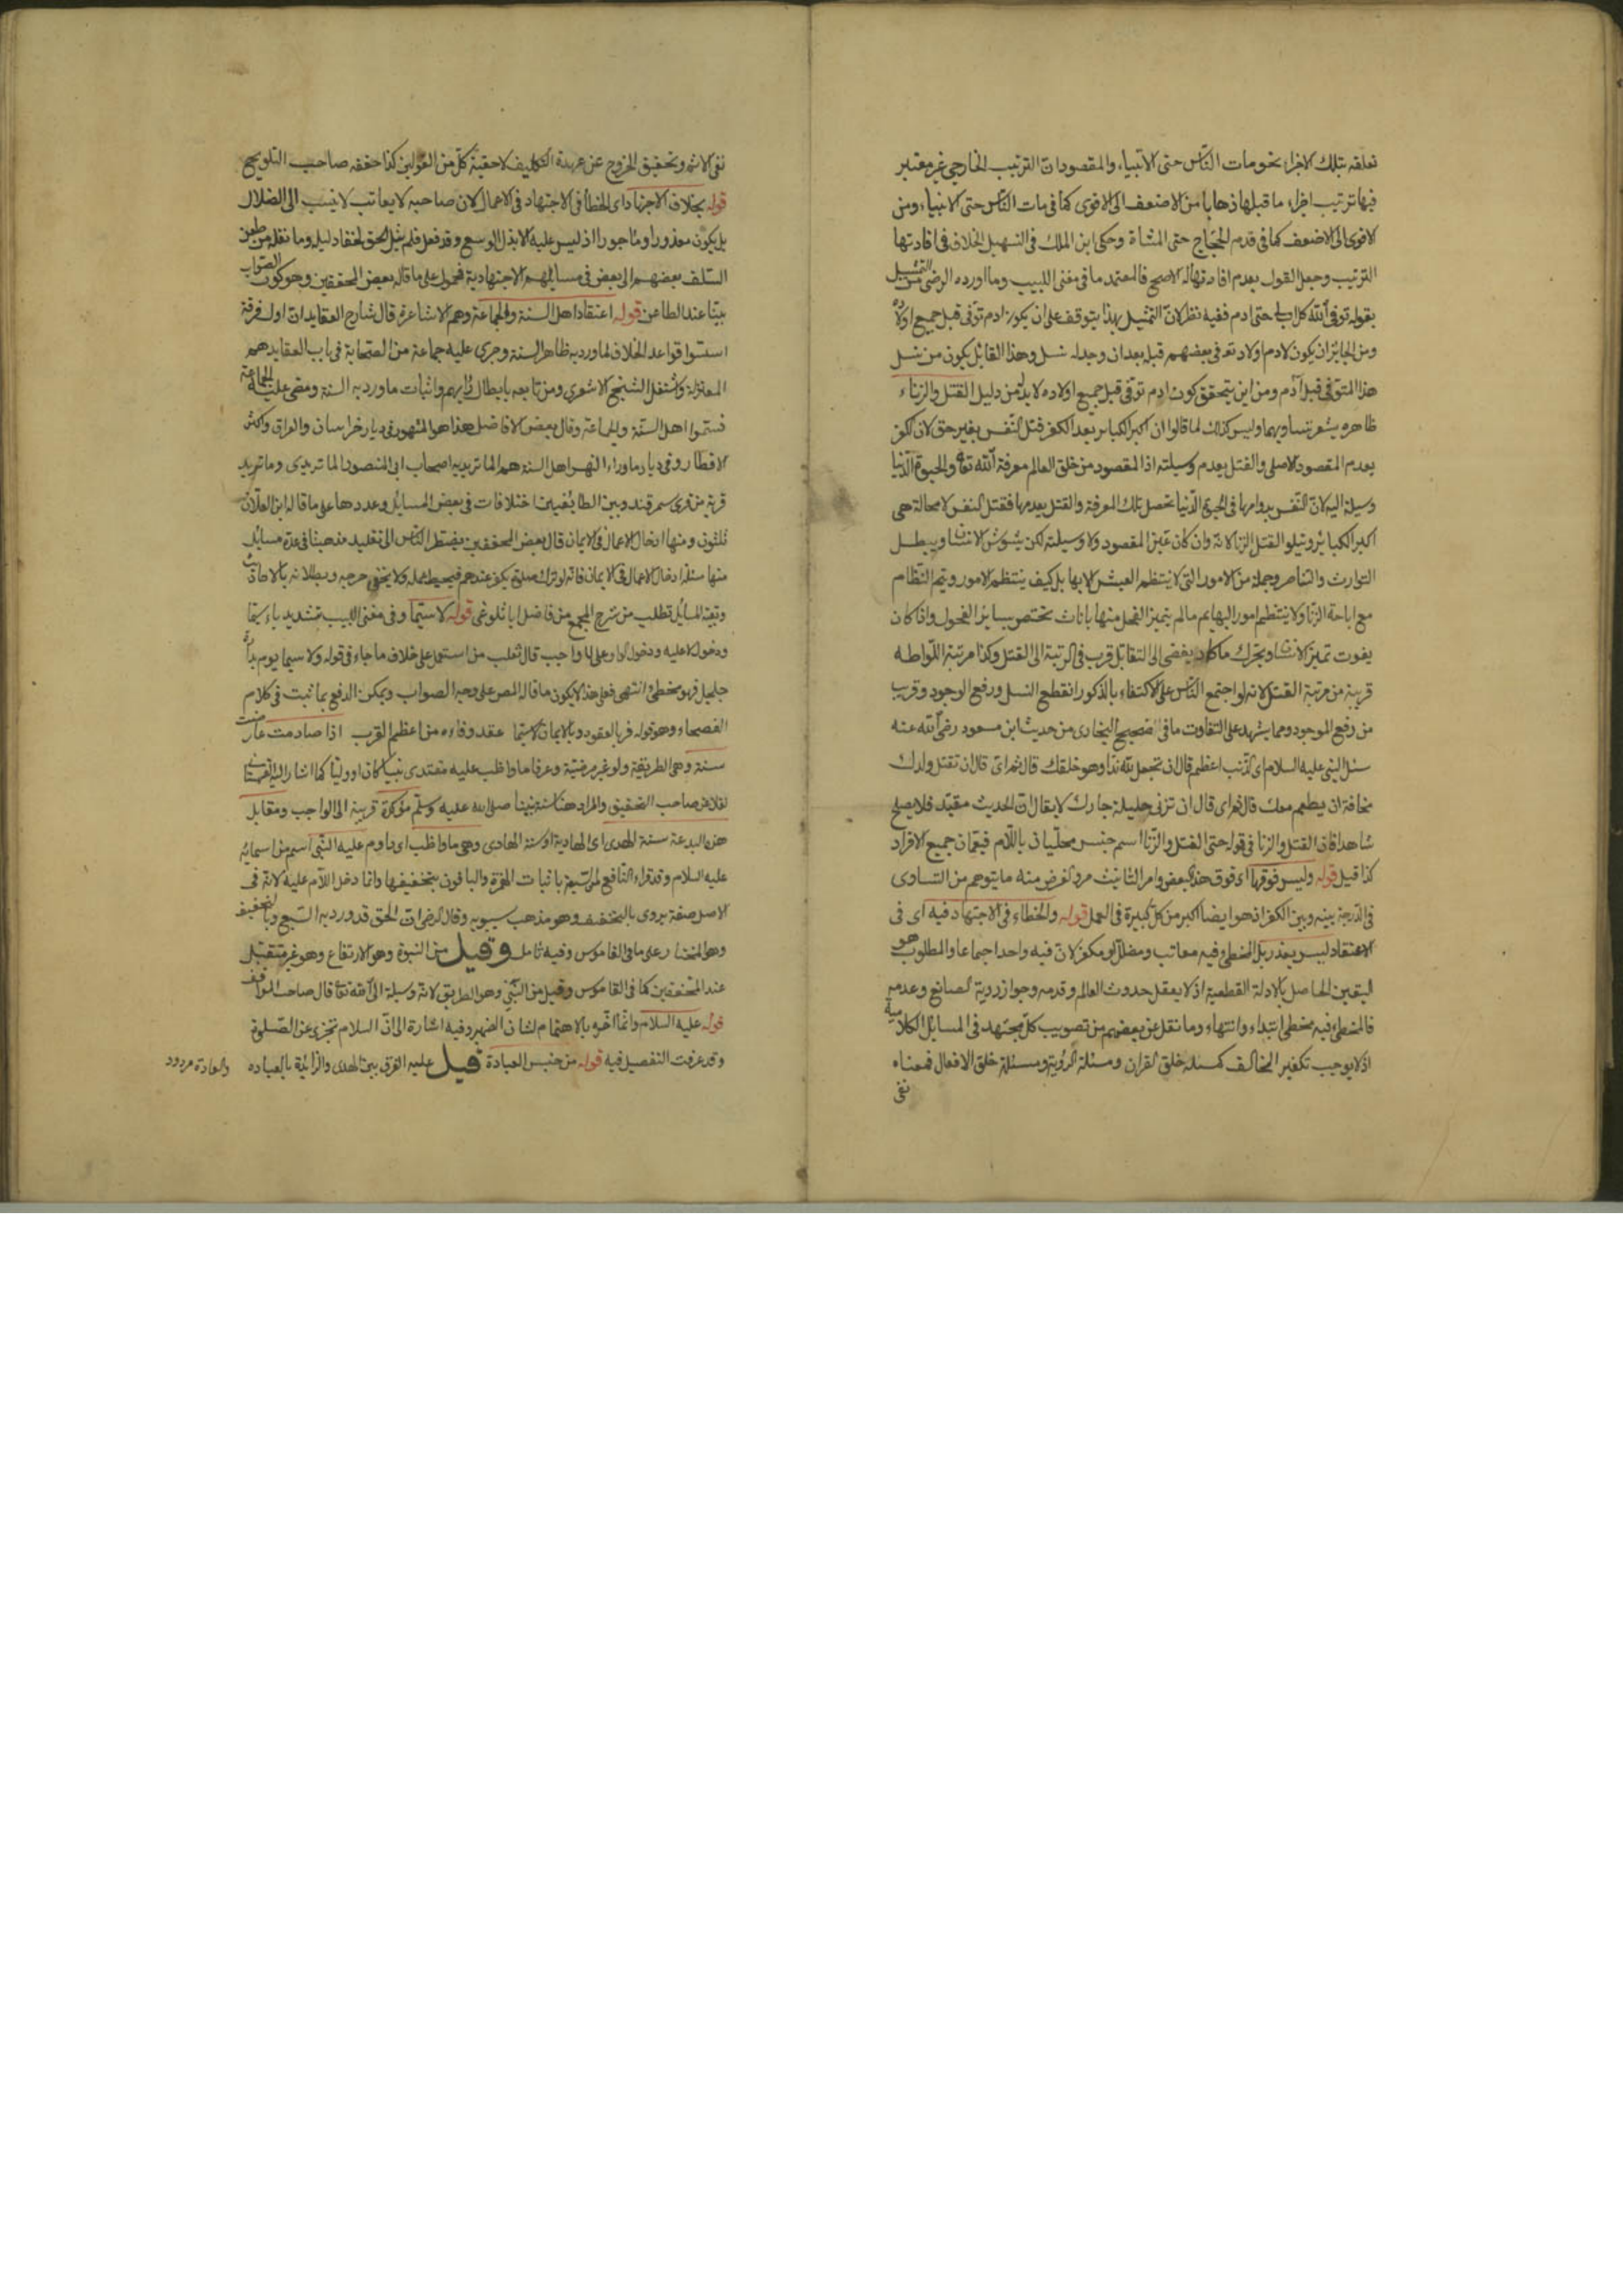 تعلقه بتلك الاجزاء نحو مات الناس حتى الانبياء والمقصود ان الترتيب الخارجي غير معتبر
فيها ترتيب اجزاء ما قبلها ذهابا من الاضعف الى الاقوى كما في مات الناس حتى الانبياء ومن
الاقوى الى الاضعف كما في قدم الحجاج حتى المشاة وحكى ابن الملك في التسهيل الخلاف في افادتها
الترتيب وجعل القول بعدم افادتها له الاصح فالمعتمد ما في مغنى اللبيب وما اورده الرضى من التمثيل
بقوله توفى الله كل اب لي حتى ادم ففيه نظر لان التمثيل بهذا يتوقف على ان يكون ادم توفى قبل جميع اولاده
ومن الجائز ان يكون لادم اولاد توفى بعضهم قبله بعد ان وجد له نسل وهذا القائل يكون من نسل
هذا المتوفى قبل آدم ومن اين يتحقق كون ادم توفى قبل جميع اولاده لا بد من دليل القتل والزناء
ظاهره يشعر بتساويهما وليس كذلك لما قالوا ان اكبر الكبائر بعد الكفر قتل النفس بغير حق لان الكفر
يعدم المقصود الاصلى والقتل يعدم وسيلته اذ المقصود من خلق العالم معرفة الله تعالى والحيوة الدنيا
وسيلة اليه لان النفس بدوامها في الحيوة الدنيا تحصل تلك المعرفة والقتل يعدمها فقتل النفس لا محالة هى
اكبر الكبائر ويتلو القتل الزنا لانه وان كان عين المقصود ولا وسيلته لكن يشوش الانساب ويبطل
التوارث والتناصر وجملة من الامور التى لا ينتظم العيش الا بها بل كيف ينتظم الامور ويتم النظام
مع اباحة الزنا ولا ينتظم امور البهايم ما لم يتميز الفحل منها باناث تختص بسائر الفحول واذا كان
يفوت تميز الانساب ويحرك ما كاد يفضى الى التقاتل قرب في الرتبة الى القتل وكذا مرتبة اللواطه
قريبة من مرتبة القتل لانه لو اجتمع الناس على الاكتفاء بالذكور انقطع النسل ورفع الوجود وقريب
من رفع الموجود ومما يشهد على التفاوت ما في صحيح البخارى من حديث ابن مسعود رضى الله عنه
سئل النبى عليه السلام اى الذنب اعظم قال ان تجعل لله ندا وهو خلقك قال ثم اى قال ان تقتل ولدك
مخافة ان يطعم معك قال ثم اى قال ان تزنى حليلة جارك لا يقال ان الحديث مقيد فلا يصلح
شاهدا فان القتل والزنا في قوله حتى القتل والزنا اسم جنس محليان باللام فيعمان جميع الافراد
كذا قيل قوله وليس فوقها اى فوق هذا البعض وامر التانيث مر والغرض منه ما يتوهم من التساوى
في الدرجة بينه وبين الكفر اذ هو ايضا اكبر من كل كبيرة في العمل قوله والخطاء في الاجتهاد فيه اى فى
الاعتقاد ليس بعذر بل المخطئ فيه معاتب ومضلل او مكفر لان فيه واحد اجماعا والمطلوب هو
اليقين الحاصل بالادلة القطعية اذ لا يعقل حدوث العالم وقدمه وجواز رؤية الصانع وعدمه
فالمخطئ فيه مخطئ ابتداء وانتهاء وما نقل عن بعضهم من تصويب كل مجتهد في المسائل الكلامية
اذ لا يوجب تكفير المخالف كمسئلة خلق القران ومسئلة الرؤية ومسئلة خلق الافعال فمعناه
نفى
نفى الاثم وتحقيق الخروج عن عهدة التكليف لا حقية كل من القولين كذا حققه صاحب التلويح
قوله بخلاف الاجتهاد اى الخطأ في الاجتهاد في الاعمال لان صاحبه لا يعاتب لا ينسب الى الضلال
بل يكون معذورا وماجورا اذ ليس عليه الا بذل الوسع وقد فعل فلم ينل الحق لخفاء دليله وما نقل من طعن
السلف بعضهم الى بعض في مسايلهم الاجتهادية فمحمول على ما قاله بعض المحققين وهو كون الصواب
بينا عند الطاعن قوله اعتقاد اهل السنة والجماعة وهم الاشاعرة قال شارح العقايد ان اول فرقة
اسسوا قواعد الخلاف لما ورد به ظاهر السنة وجرى عليه جماعة من الصحابة في باب العقايد هم
المعتزلة واشتغل الشيخ الاشعرى ومن تابعه بابطال رايهم واثبات ما ورد به السنة ومضى عليه الجماعة
فسموا اهل السنة والجماعة وقال بعض الافاضل هذا هو المشهور في ديار خراسان والعراق واكثر
الاقطار وفى ديار ما وراء النهر اهل السنة هم الماتريدية اصحاب ابى المنصور الماتريدى وماتريد
قرية من قرى سمرقند وبين الطائفتين اختلافات في بعض المسايل وعددها على ما قاله ابن العلان
ثلثون ومنها ادخال الاعمال في الايمان قال بعض المحققين يضطر الناس الى تقليد مذهبنا في عدة مسايل
منها مسئلة ادخال الاعمال في الايمان فانه لو ترك صلوة يكفر عندهم فيحبط عمله ولا يخفى حرجه وبطلانه بالاحاديث
وبقية المسايل تطلب من شرح المجمع من فاضل اياثلوغى قوله لا سيما وفى مغنى اللبيب تشديد ياء سيما
ودخول لا عليه ودخول الواو على لا واجب قال ثعلب من استعمل على خلاف ما جاء في قوله ولا سيما يوم بدارة
جلجل فهو مخطئ انتهى فعلى هذا لا يكون ما قاله المص على وجه الصواب ويمكن الدفع بما ثبت في كلام
الفصحاء وهو قوله فر بالعقود وبالايمان لا سيما عقد وفاءه من اعظم القرب اذا صادمت
سنة وهى الطريقة ولو غير مرضية وعرفا ما واظب عليه مقتدى نبيا كان او وليا كما اشار اليه
نقلا عن صاحب التحقيق والمراد هنا سنة نبينا صلى الله عليه وسلم مؤكدة قريبة الى الواجب ومقابل
هذه البدعة سنة الهدى اى الهادية او سنة الهادى وهى ما واظب اى داوم عليه النبى اسم من اسمائه
عليه السلام وقد قراء النافع اثبات الهمزة والباقون بتخفيفها وانما دخل اللام عليه لانه فى
الاصل صفة يروى بالتخفيف وهو مذهب سيبويه وقال الرضى ان الحق قد ورد به السبع وبالتخفيف
وهو المختار على ما في القاموس وفيه تامل وقيل من النبوة وهو الارتفاع وهو غير متقبل
عند المحققين كما في القاموس وقيل من النبى وهو الطريق لانه وسيلة الى الله تعالى قال صاحب المواقف
قوله عليه السلام وانما اخره بالاهتمام لشان الضمير وفيه اشارة الى ان السلام تجزى عن الصلوة
وقد عرفت التفصيل فيه قوله من جنس العبادة قيل عليه الفرق بين الهدى والزائدة بالعباده
والعادة مردود